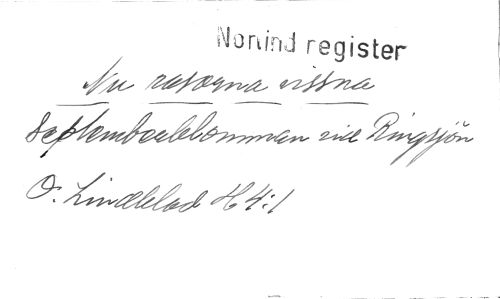 Norlind register
Nu rosorna vissna
Septemberblomman vid Ringsjön
O. Lindblad H 4:1